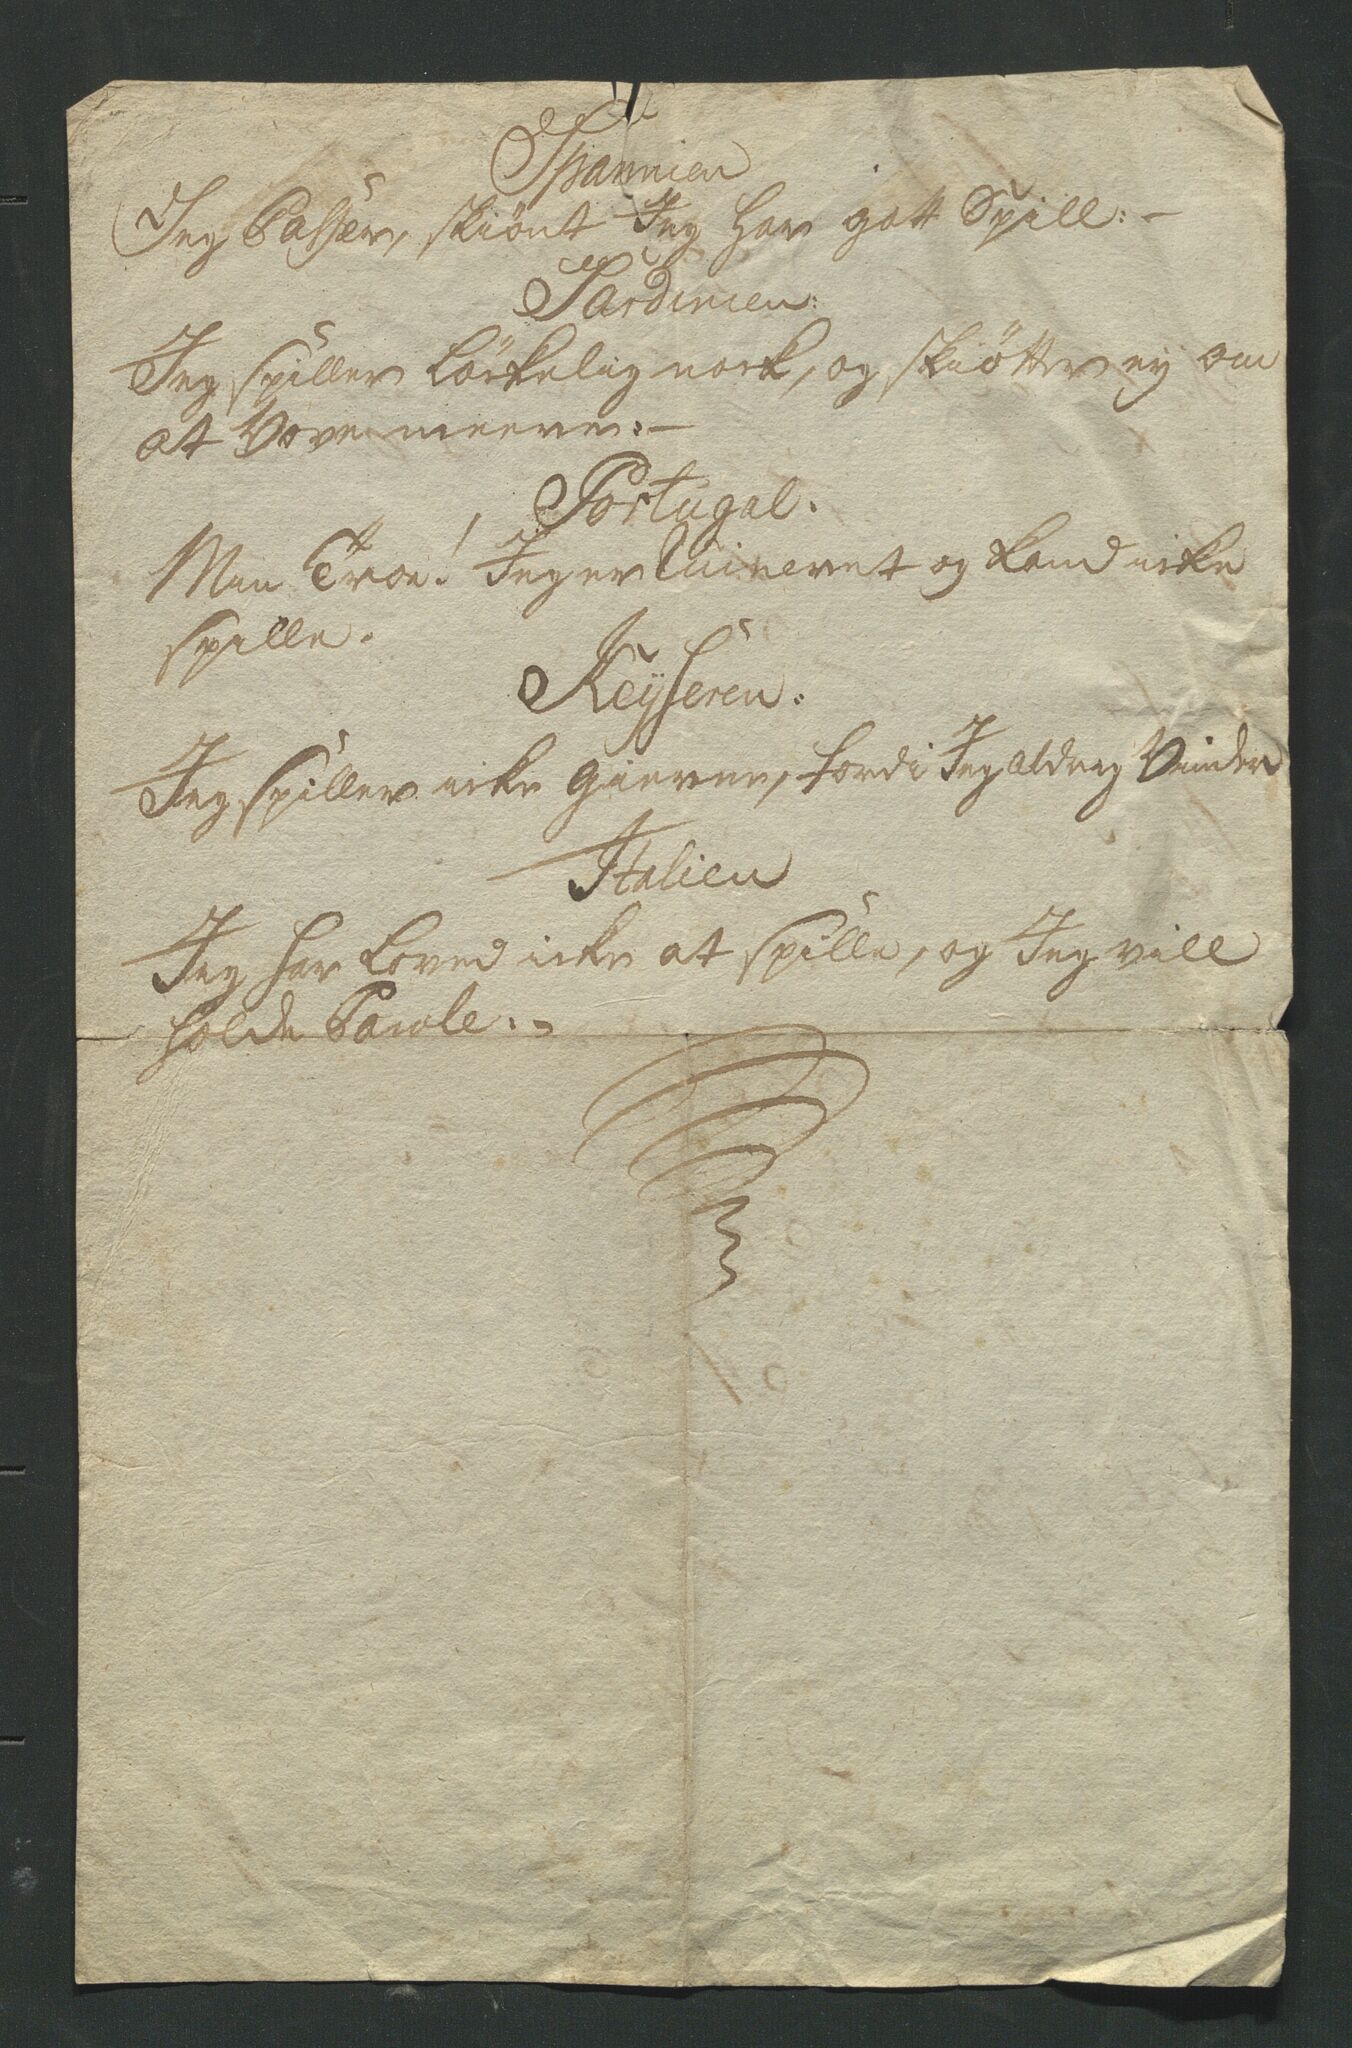 Spannien
Jeg Passer, skiönt Jeg har gott Spill:-
Sardinien:
Jeg spiller lörkelig nock, og skiötter ey om
at Vove meere:-
Portugal.
Min Troe! Jeg er Ruineret og kand icke
spille.
Keyseren:
Jeg spiller icke gierne, fordi Jeg aldrig Vinder
Italien
Jeg har loved icke at spille, og Jeg vill
holde Parole:-